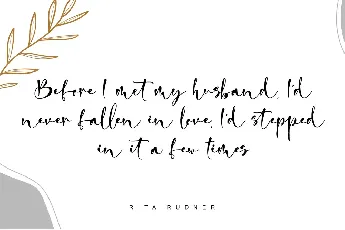 Before I met my husband, I'd
never fallen in love, I'd stepped
in it a few times
RITA RUDNER